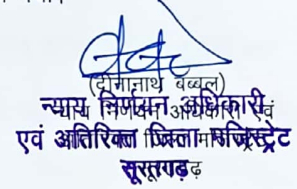 (दीनानाथ बब्बल)
न्याय निर्णयन अधिकारी
एवं अतिरिक्त जिला मजिस्ट्रेट
सूरतगढ़